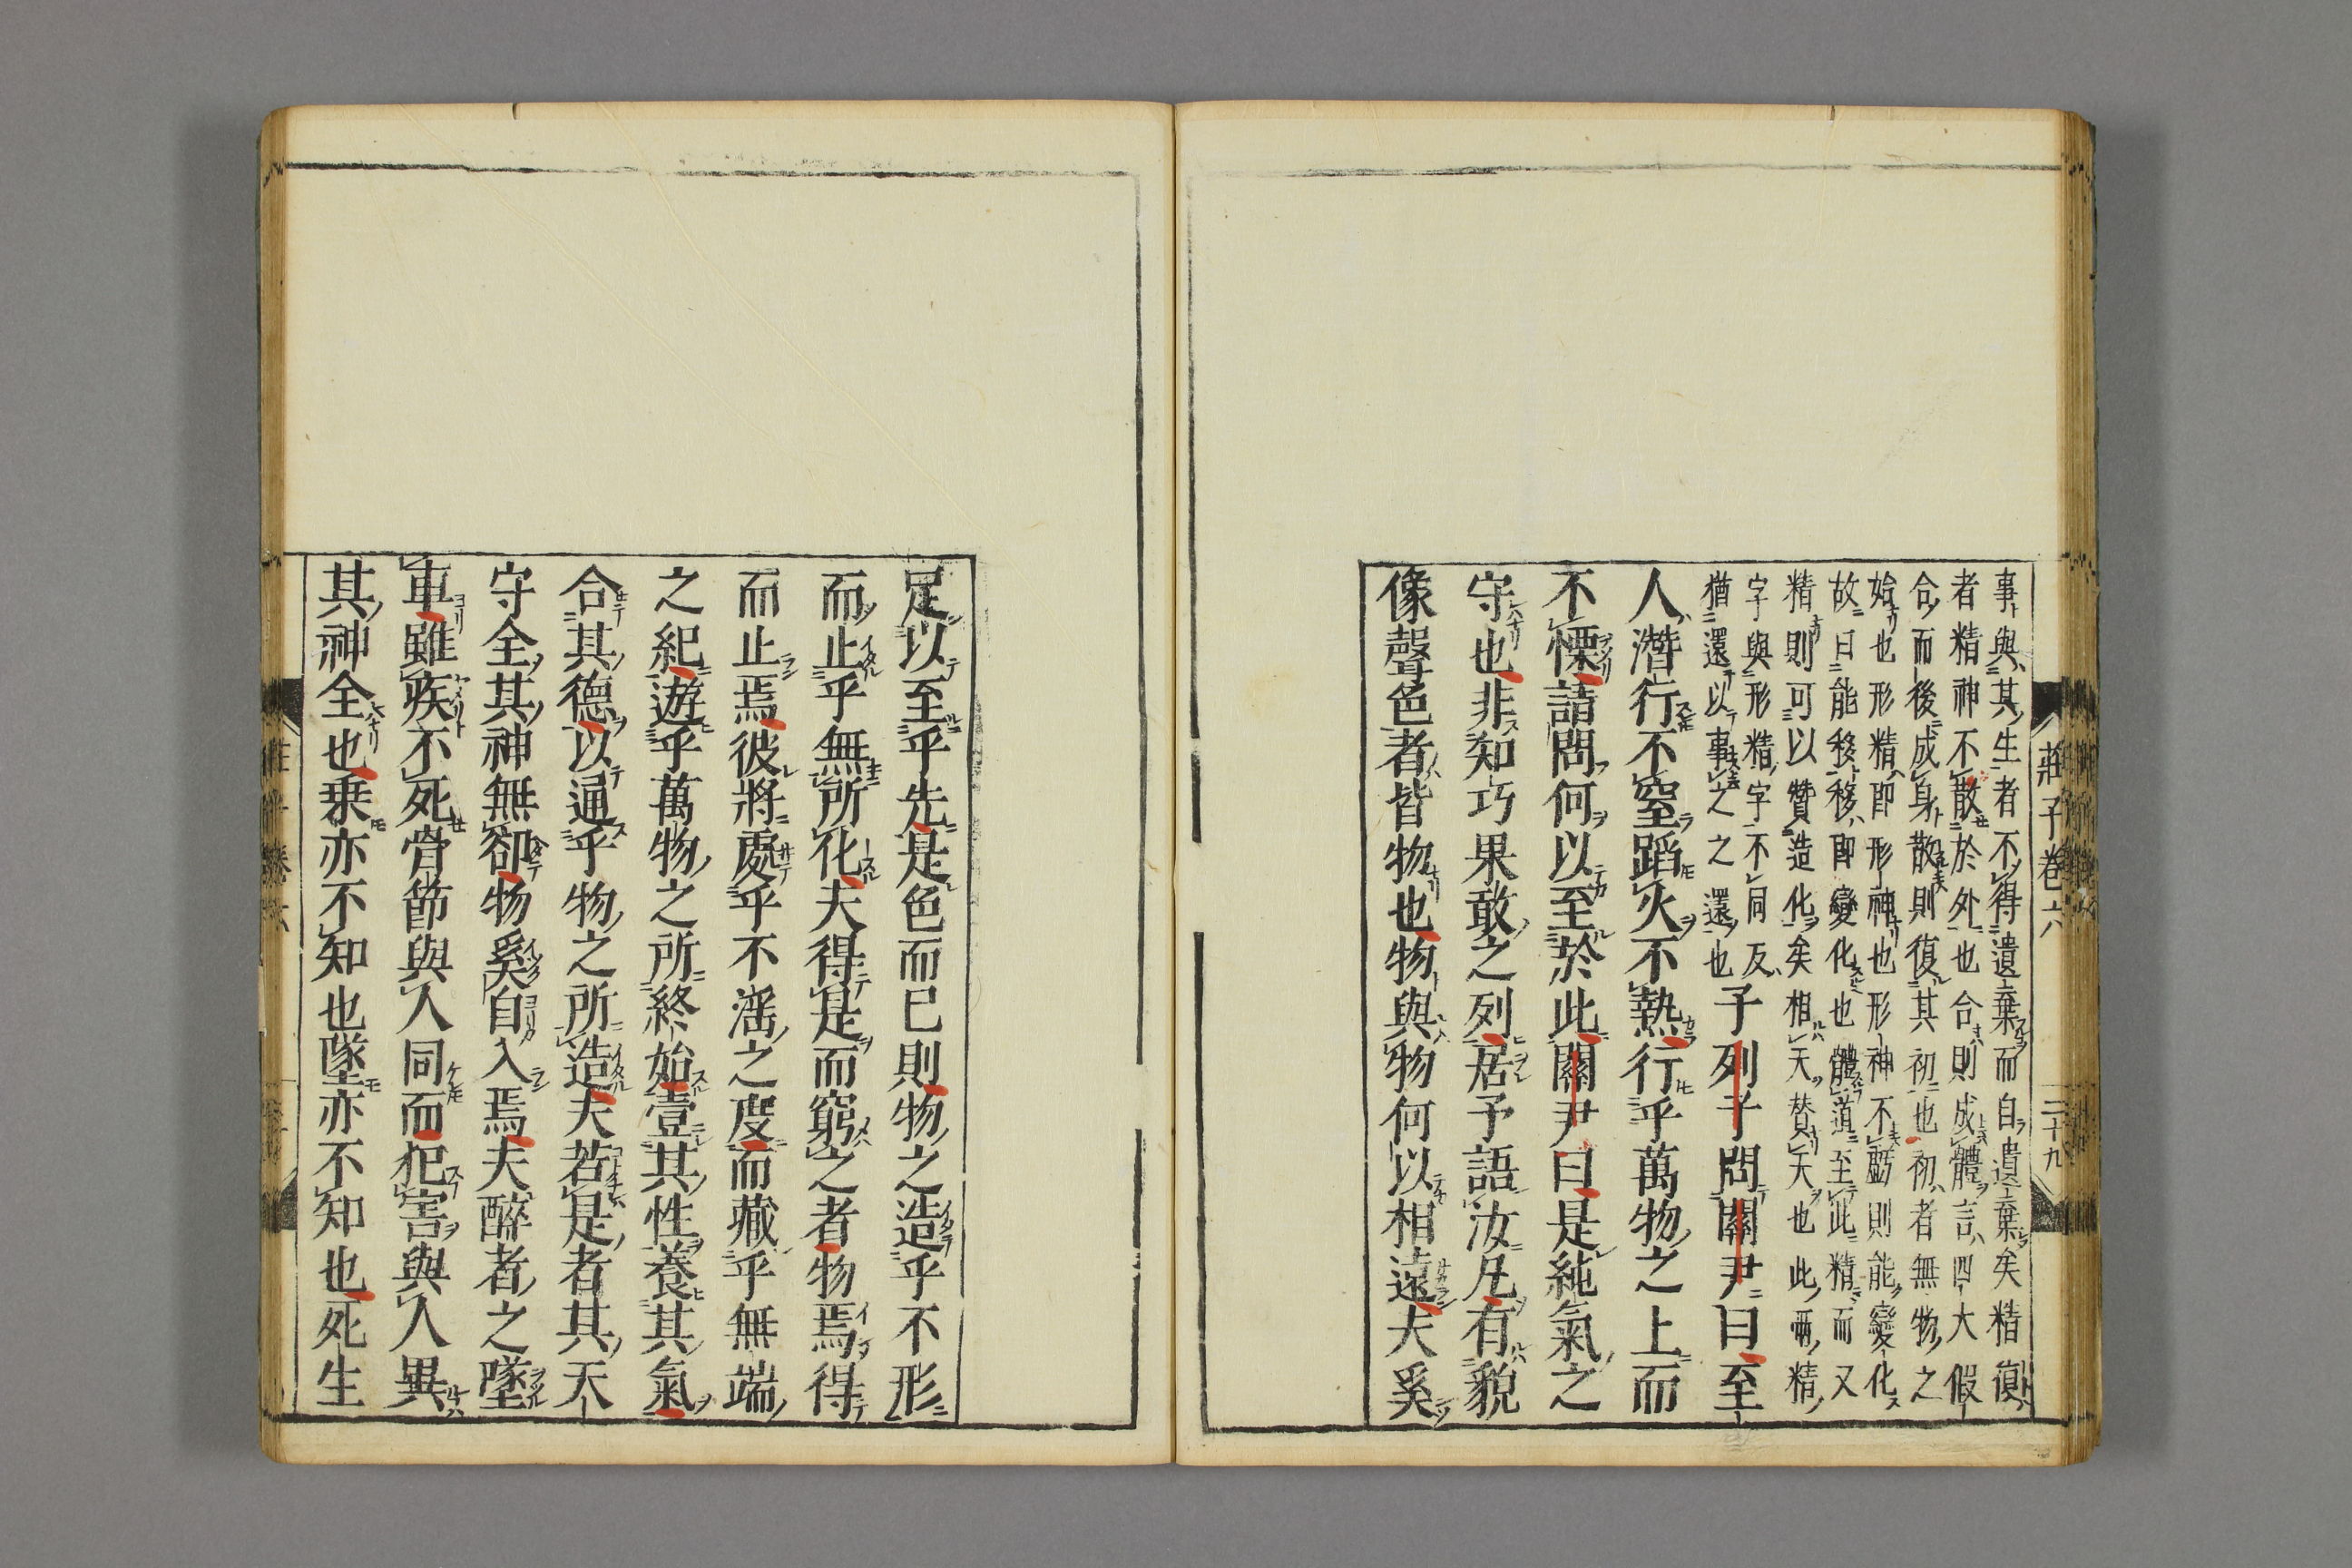 事與其生者不得遺棄而自遺棄矣精復
者精神不散於外也合則成體言四大假
合而後成身散則復其初也初者無物之
始也形精即形神也形神不虧則能變化
故曰能移移即變化也體道至此精而又
精則可以贊造化矣相天贊天也此兩精
字與形精字不同反
猶還以事之之還也子列子問關尹曰至
人潛行不窒蹈火不熱行乎萬物之上而
不慄請問何以至於此關尹曰是純氣之
守也非知巧果敢之列居予語汝凡有貌
像聲色者皆物也物與物何以相遠夫奚
莊子卷六
三十九
足以至乎先是色而已則物之造乎不形
而止乎無所化夫得是而窮之者物焉得
而止焉彼將處乎不滛之度而藏乎無端
之紀遊乎萬物之所終始壹其性養其氣
合其德以通乎物之所造夫若是者其天
守全其神無郤物奚自入焉夫醉者之墜
車雖疾不死骨節與人同而犯害與人異
其神全也乗亦不知也墜亦不知也死生